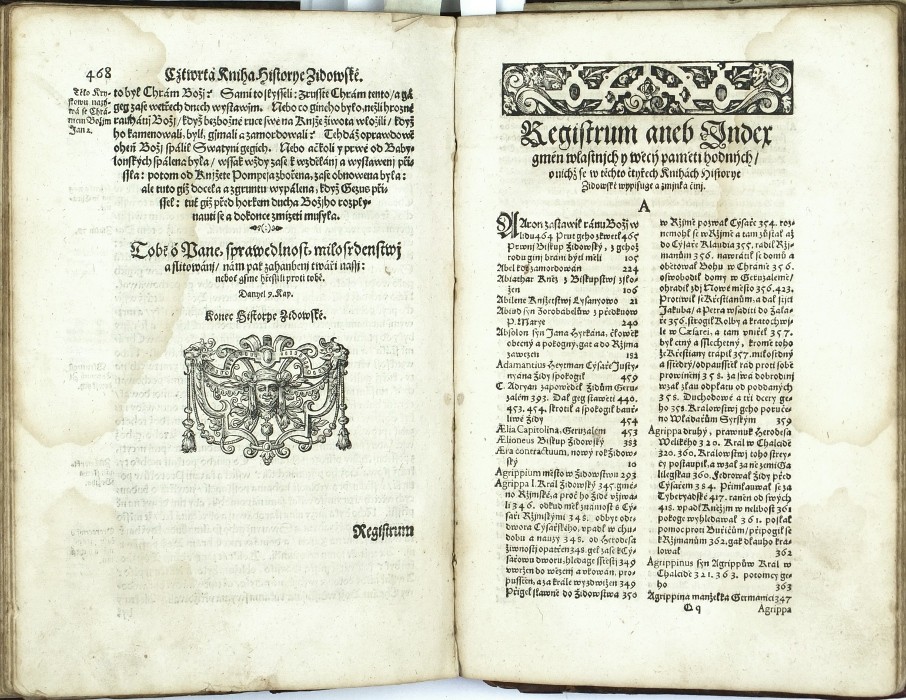 468
Cżtwrtá Kniha Historye Židowské.
Tělo Kry-
stowo nazý-
wá se Chrá-
mem Božjm
Jan 2.
to byl Chrám Božj? Samito slysseli: Zrusste Chrám tento / a gá
geg zase wetřech dnech wystawjm. Nebo co giného bylo, nežli hrozné
Božj / když bezbožné ruce swé na Knjže žiwota wložili / když
ho kamenowali, byli, gjmali a zamordowali? Tehdáž oprawdowě
oheň Božj spálil Swatyni gegich. Nebo ačkoli y prwé od Baby-
lonských spálena byla / wssak wždy zase k wzdělánj a wystawenj při-
ssla: potom od Knjžete Pompeja zbořena, zase obnowena byla:
ale tuto giž docela a zgruntu wypálena, když Gezus při-
ssel: tuť giž před horkem ducha Božjho rozply-
nauti se a dokonce zmizeti musyla.
Tobě ó Pane, sprawedlnost, milosrdenstwj
a slitowánj / nám pak zahanbenj twáři nassj:
neboť gsme hřessili proti tobě.
Danyel 9. Kap.
Konec Historye Židowské.
Registrum
Registrum aneb Index
gmén wlastnjch y wěcý paměti hodných /
o nichž se w těchto čtyřech Knihách Historye
Židowské wypisuge a zmjnka činj.
A
AAron zastawil ránu Božj w
lidu 464 Prut geho zkwetl 465
Prwnj Biskup Židowský, z gehož
rodu ginj brani býti měli 105
Abel kož zamordowán 224
Abiathar Kněz z Biskupstwj zslo-
žen 106
Abilene Knjžetstwj Lysanyowo 21
Abiud syn Zorobabelůw z předkuow
P. Marye 240
Absolon syn Jana Hyrkána, člowěk
obecný a pokogný, gat a do Řjma
zawezen 192
Adamantius Heytman Cýsaře Justy-
nyána Židy spokogil 459
C. Adryan zapowěděl Židům Geru-
zalém 393. Dal geg stawěti 440.
453. 454. skrotil a spokogil bauř-
liwé Židy 454
Ælia Capitolina, Geruzalem 453
Ælioneus Biskup Židowský 383
Æra contractuum, nowý rok Židow-
ský 10
Agrippium město w Židowstwu 293
Agrippa I. Král Židowský 345. gmé-
no Řjmské, a proč ho Židé vžjwa-
li 346. odkud měl známost s Cý-
saři Řjmskými 348. odbyt ode-
dwora Cýsařského, vpadl w chu-
dobu a nauzy 348. od Herodesa
žiwnostj opatřen 348. gel zase k Cý-
sařowu dworu, hledage sstěstj 349
vwržen do wězenj a okowán, pro-
pusstěn, a za krále wyzdwižen 349
Přigel slawně do Židowstwa 350
w Řjmě pozwal Cýsaře 354. roz-
nemohl se w Řjmě a tam zůstal až
do Cýsaře Klaudia 355. radil Řjz-
manům 356. nawrátil se domů a
obětowal Bohu w Chrámě 356.
oswobodil domy w Geruzalémě /
ohradil zdj Nowé město 356. 423.
Protiwil se Křestianům, a dal stjti
Jakuba / a Petra wsaditi do žalá-
ře 356. strogil Kolby a kratochwj-
le w Cæsarei, a tam vmřel 357.
byl ctný a sslechetný, kromě toho
že Křestiany trápil 357. milosrdný
a sstědrý / odpausstěl rád proti sobě
prowiněnj 358. za swá dobrodinj
wzal zlau odplatu od poddaných
358. Duchodowé a tři dcery ge-
ho 358. Králowstwj geho poruče-
no Wladařům Syrským 359
Agrippa druhý, prawnuk Herodesa
Welikého 320. Král w Chalcidě
320. 360. Králowstwj toho strey-
cy postaupil, a wzal zaň zemi Ga
lilegskau 360. Fedrowal Židy před
Cýsařem 384. Přimlauwal se za
Tyberyadské 417. raněn od swých
418. vpadl Kněžjm w nelibost 361
pokoge wyhledáwal 361. poslal
pomoc proti Buřičům / připogil se
k Řjmanům 362. gak dlauho kra-
lowal 362
Agrippinus syn Agrippůw Král w
Chalcidě 321. 363. potomcy ge-
ho 363
Agrippina manželka Germanici 347
Q q
Agrippa